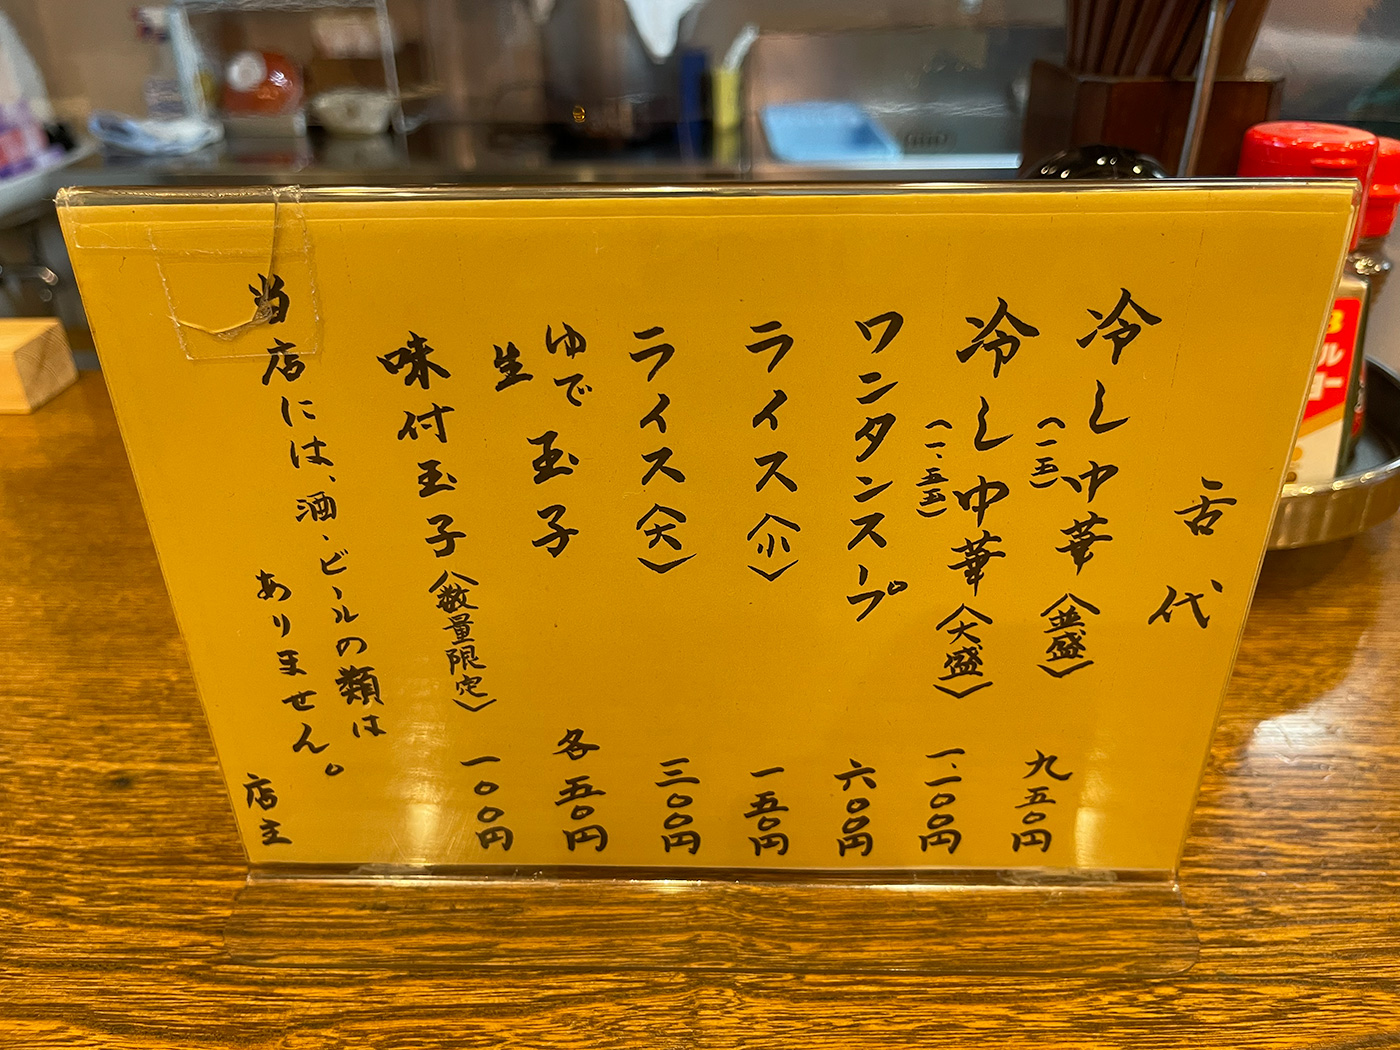 舌代
冷し中華(並盛) 九五〇円
(一・五玉)
冷し中華(大盛) 一、一〇〇円
ワンタンスープ 六〇〇円
ライス(小) 一五〇円
ライス(大) 三〇〇円
ゆで
生
玉子 各五〇円
味付玉子(数量限定) 一〇〇円
当店には、酒・ビールの類は
ありません。
店主